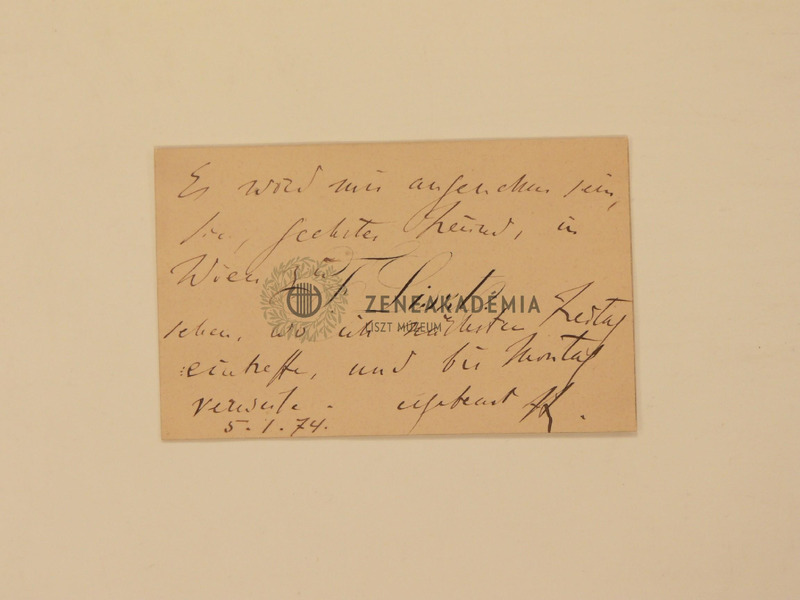 Es wird mir angenehm sein,
Sie, geehrter Freund, in
Wien zu
F. Liszt
ZENEAKADÉMIA
LISZT MÚZEUM
sehen, wo ich nächsten Freitag
eintreffe, und bis Montag
verweile. ergebenst
5.1.74.